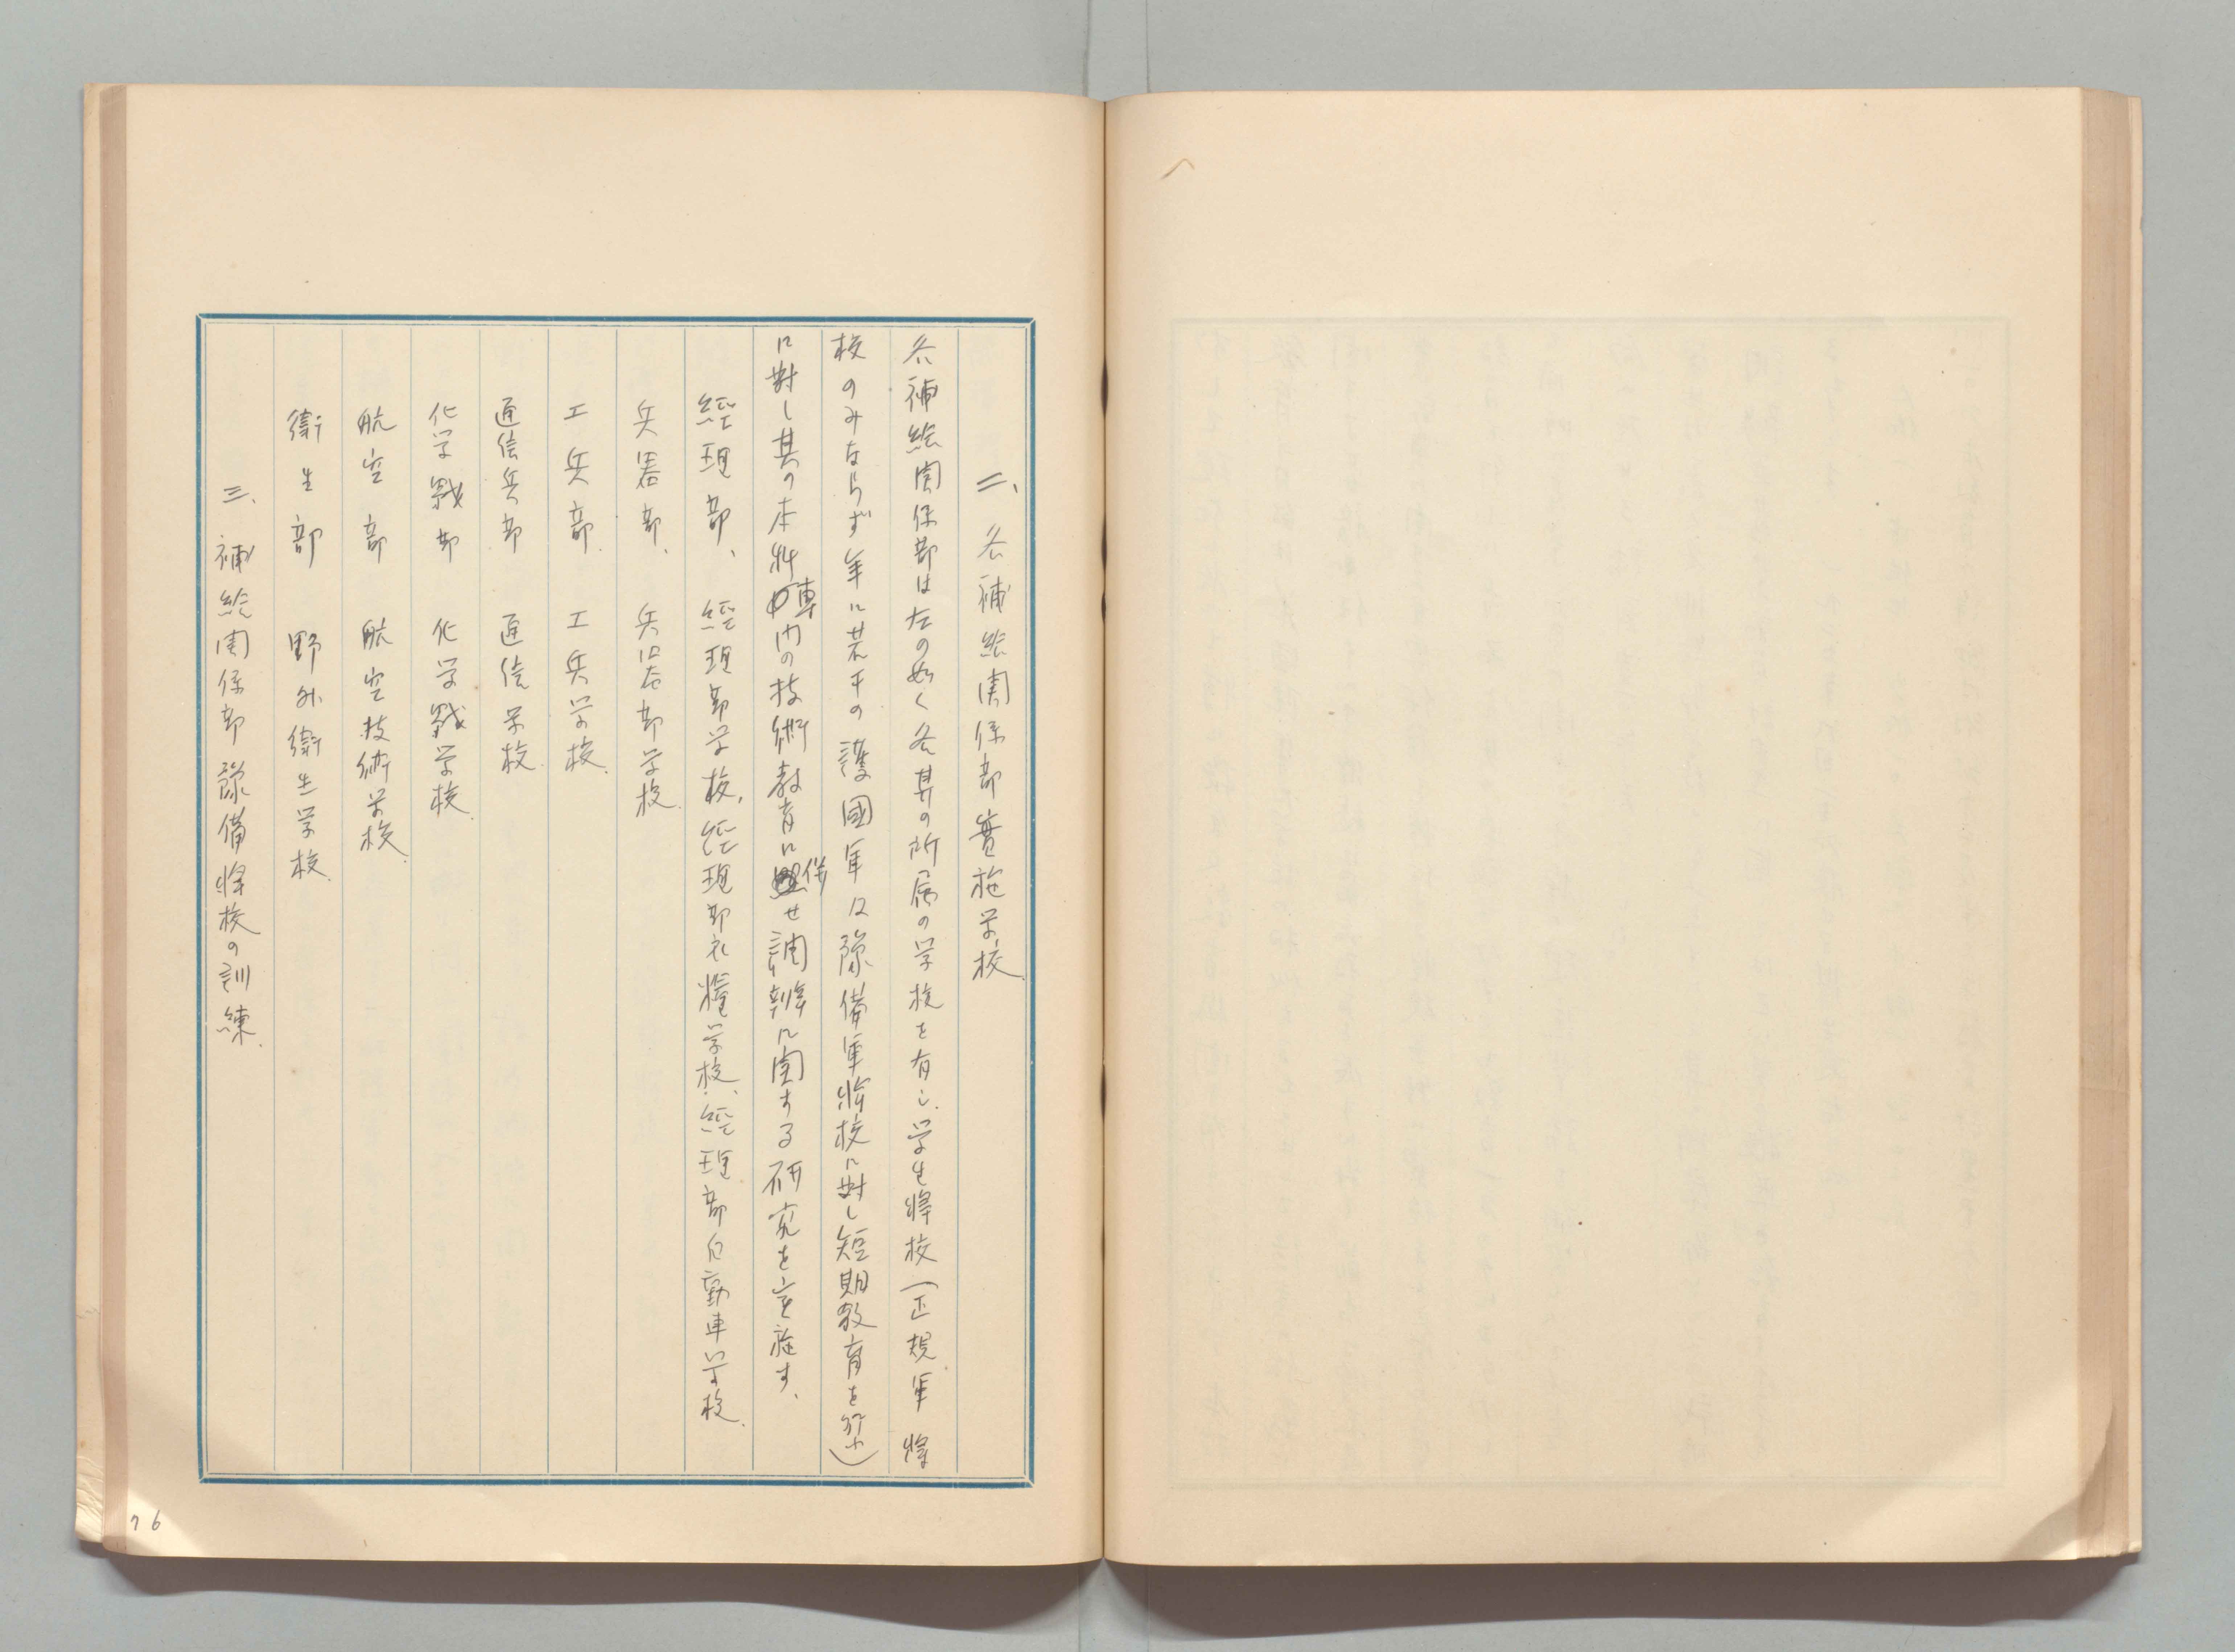 二、各補給関係部実施学校
各補給関係部は左の如く各其の所属の学校を有し、学生将校（正規軍将
校のみならず年に若干の護國軍及豫備軍将校に対し短期教育を行ふ）
に対し其の本科専門の技術教育に併せ調辨に関する研究を実施す、
経理部、経理部学校、経理部衣糧学校、経理部自動車学校、
兵器部、兵器部学校、
工兵部、工兵学校、
通信兵部 通信学校、
化学戦部 化学戦学校
航空部 航空技術学校、
衛生部 野外衛生学校、
三、補給関係部豫備将校の訓練、
76